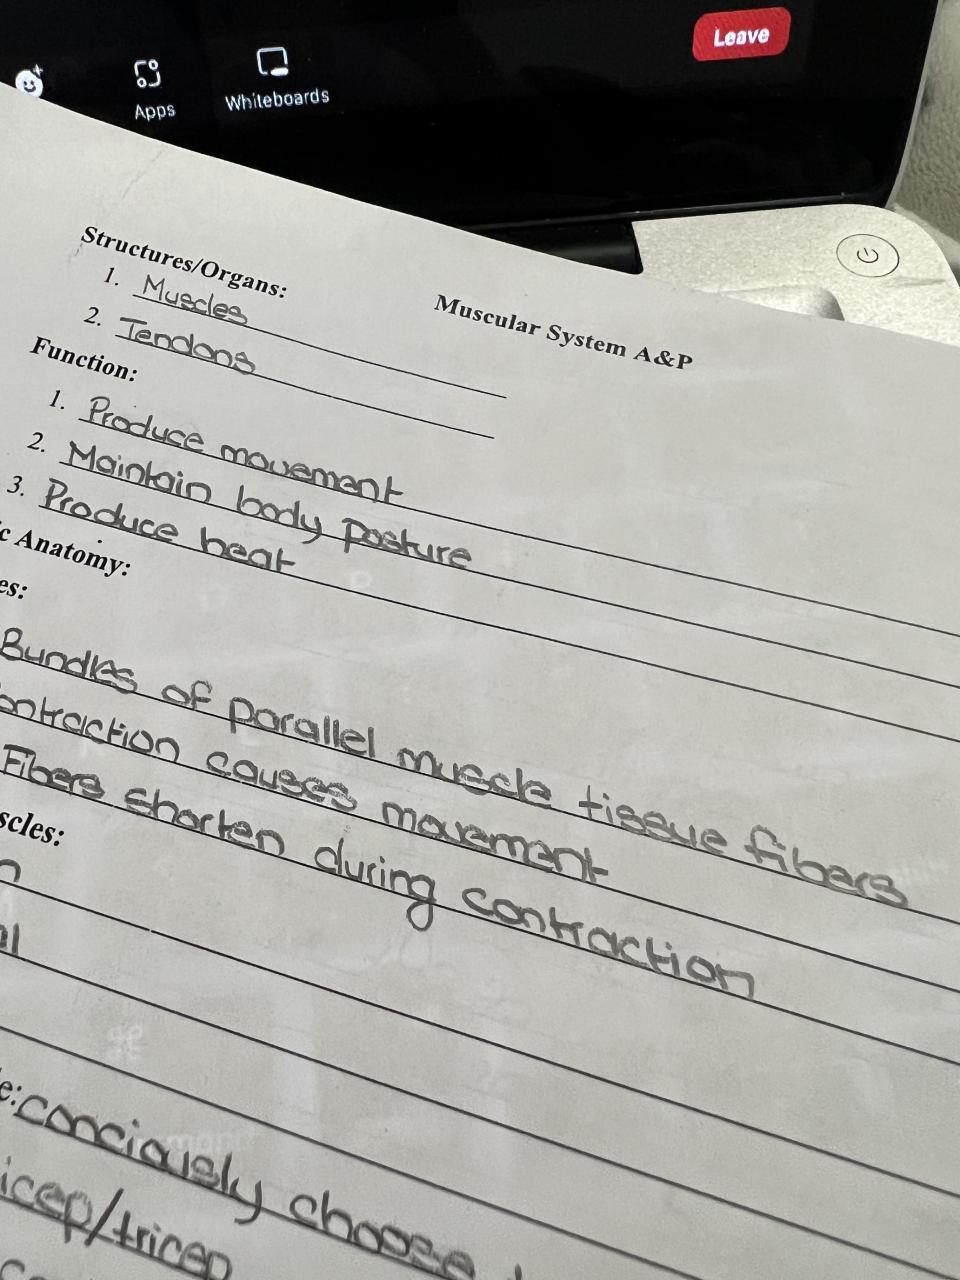 Leave
Apps
Whiteboards
Muscular System A&P
Structures/Organs:
1. Muscles
2. Tendons
Function:
1. Produce movement
2. Maintain body posture
3. Produce heat
c Anatomy:
es:
Bundles of parallel muscle tissue fibers
ontraction causes movement
Fibers shorten during contraction
scles:
n
al
e: conciously choose
icep/tricep